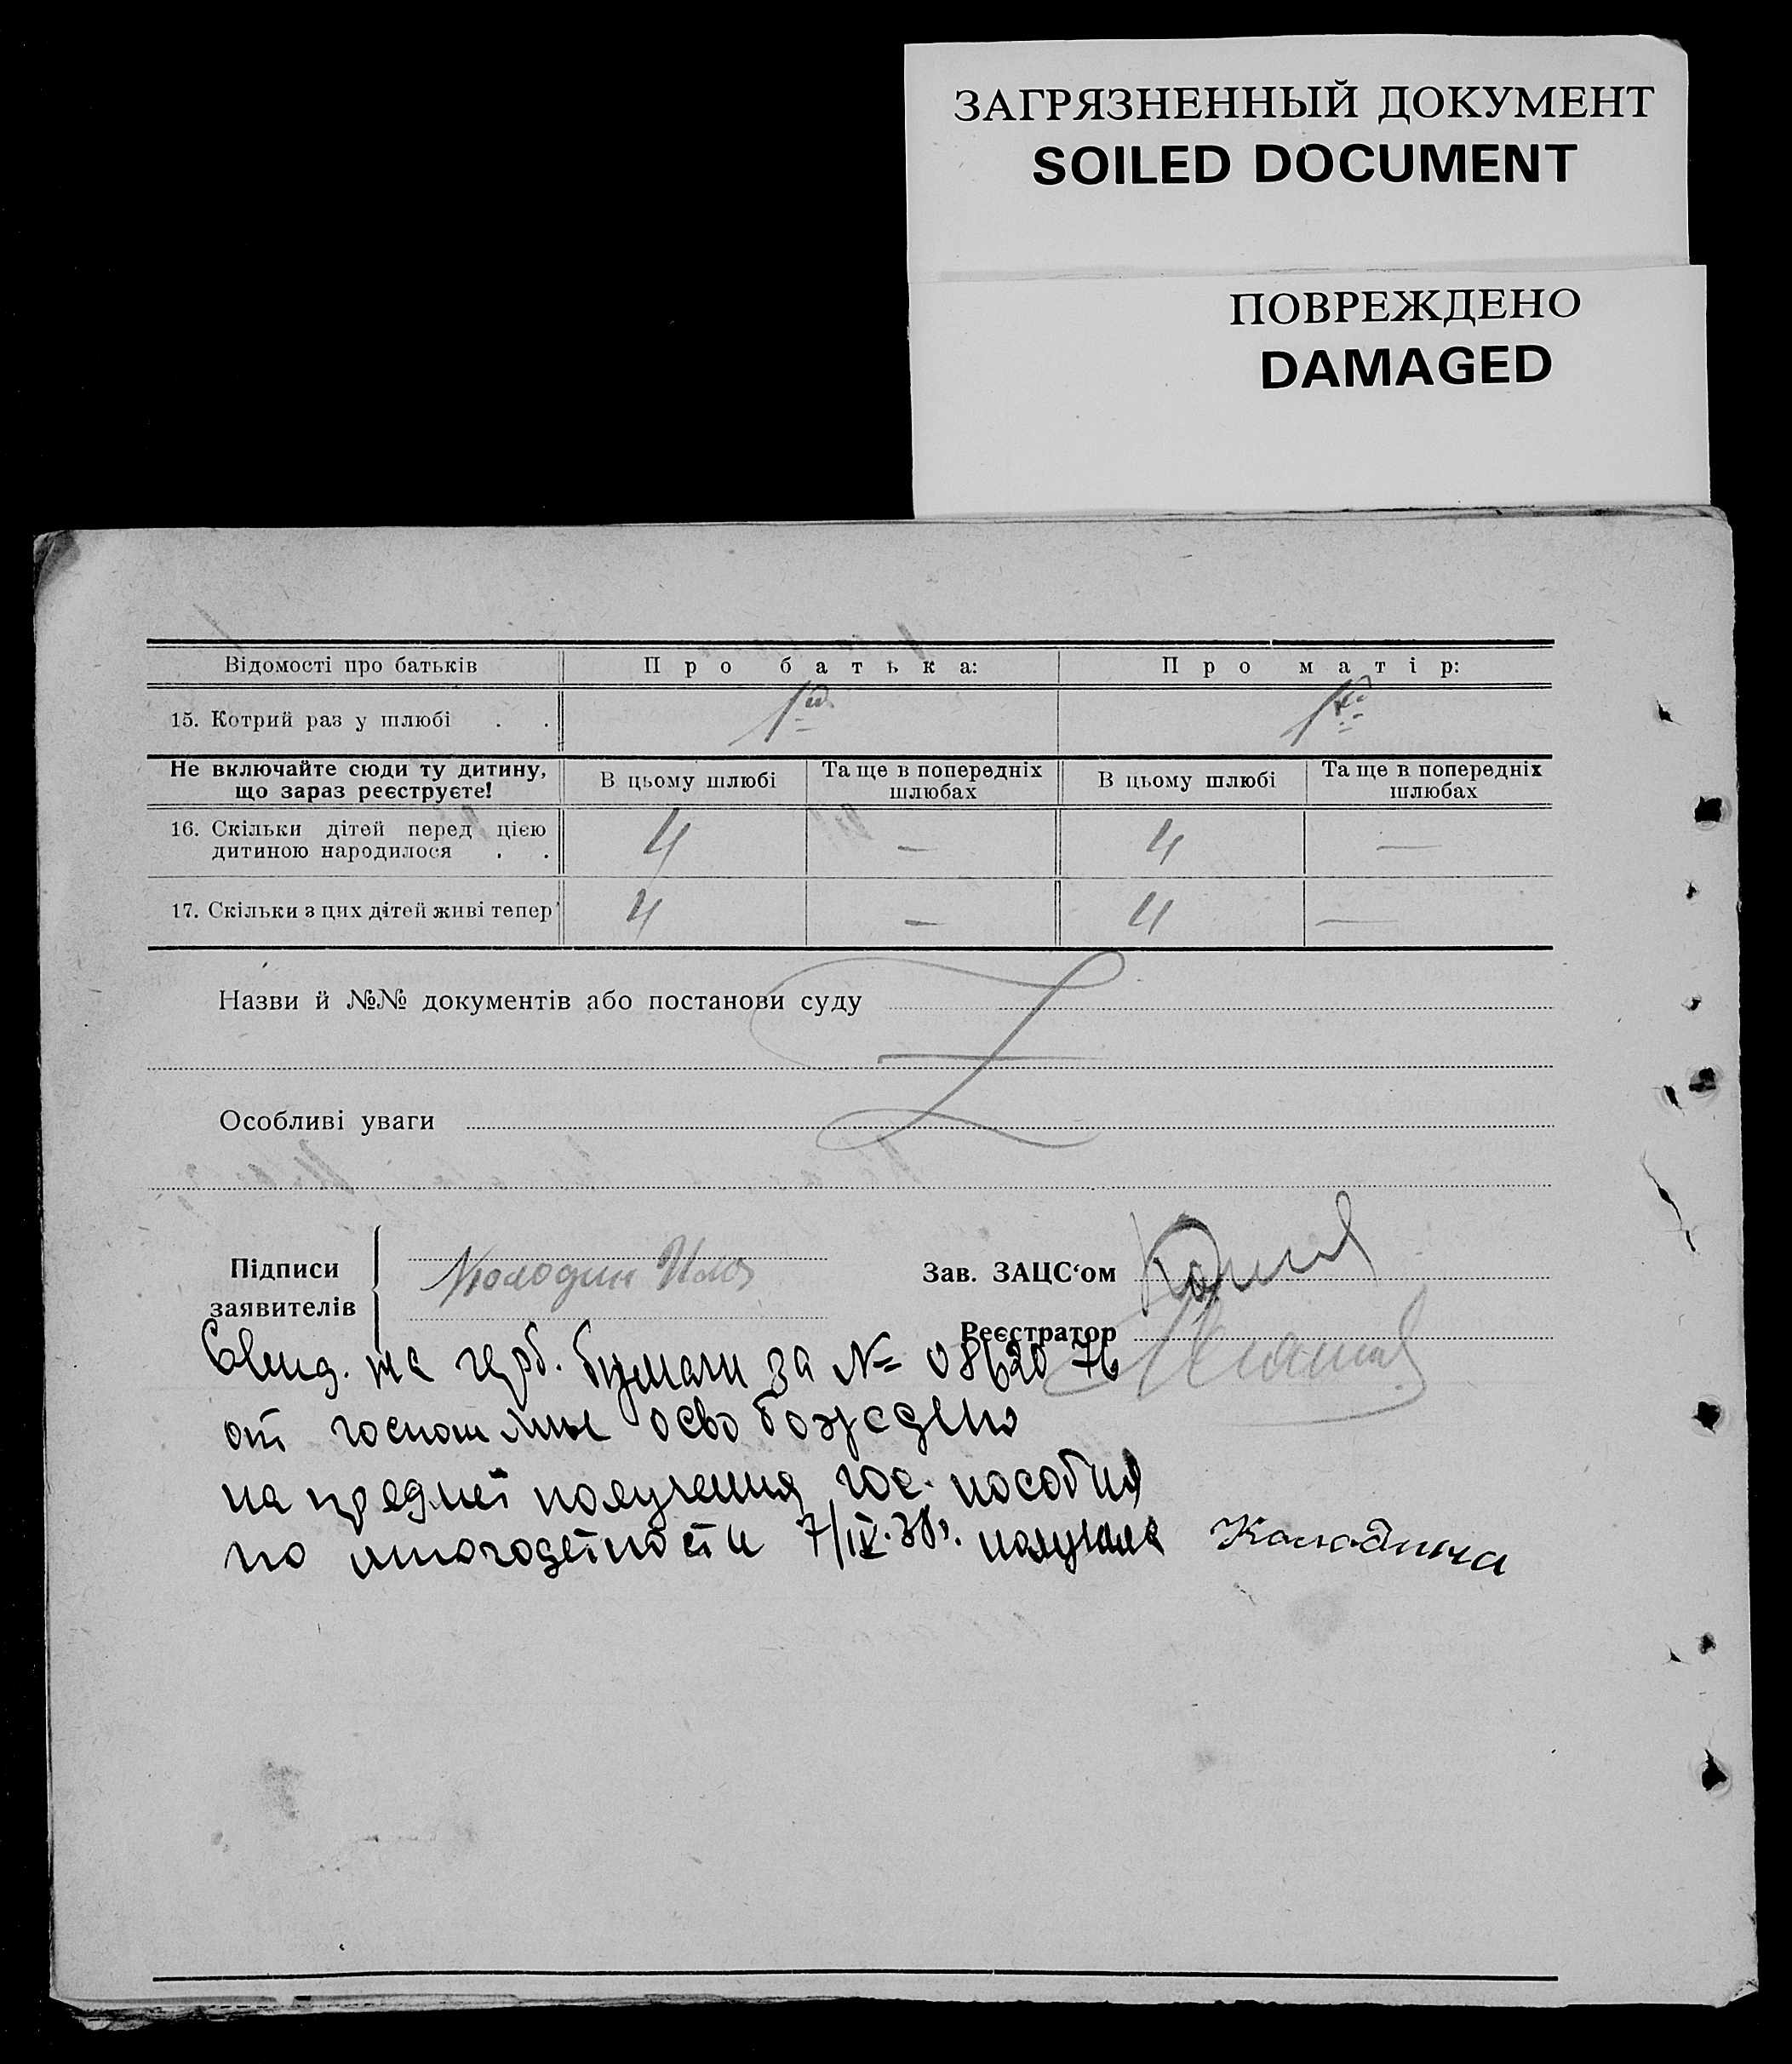 ЗАГРЯЗНЕННЫЙ ДОКУМЕНТ
SOILED DOCUMENT
ПОВРЕЖДЕНО
DAMAGED
Відомості про батьків Про батька: Про матір:
15. Котрий раз у шлюбі . . 1й 1й
Не включайте сюди ту дитину, що зараз реєструєте! В цьому шлюбі Та ще в попередніх шлюбах В цьому шлюбі Та ще в попередніх шлюбах
16. Скільки дітей перед цією
дитиною народилося . . 4 — 4 —
17. Скільки з цих дітей живі тепер 4 — 4 —
Назви й №№ документів або постанови суду
Особливі уваги
Підписи
заявителів
Колодин Илья
Зав. ЗАЦС‘ом
Реєстратор
Свид. на герб. бумаги за № 0862076
от госпошлины освобождено
на предмет получения гос. пособия
по многодетности 7/IV.38г. получила Колодина